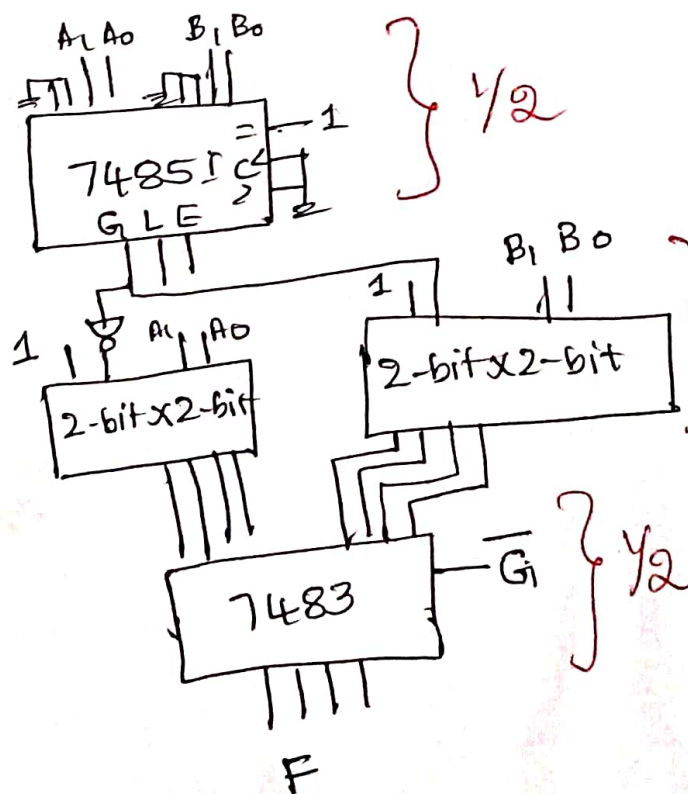 A1 A0 B1 B0
= 1
7485 IC <
>
G L E
1/2
B1 B0
1
1 A1 A0
2-bit x 2-bit
2-bit x 2-bit
7483
G̅
1/2
F